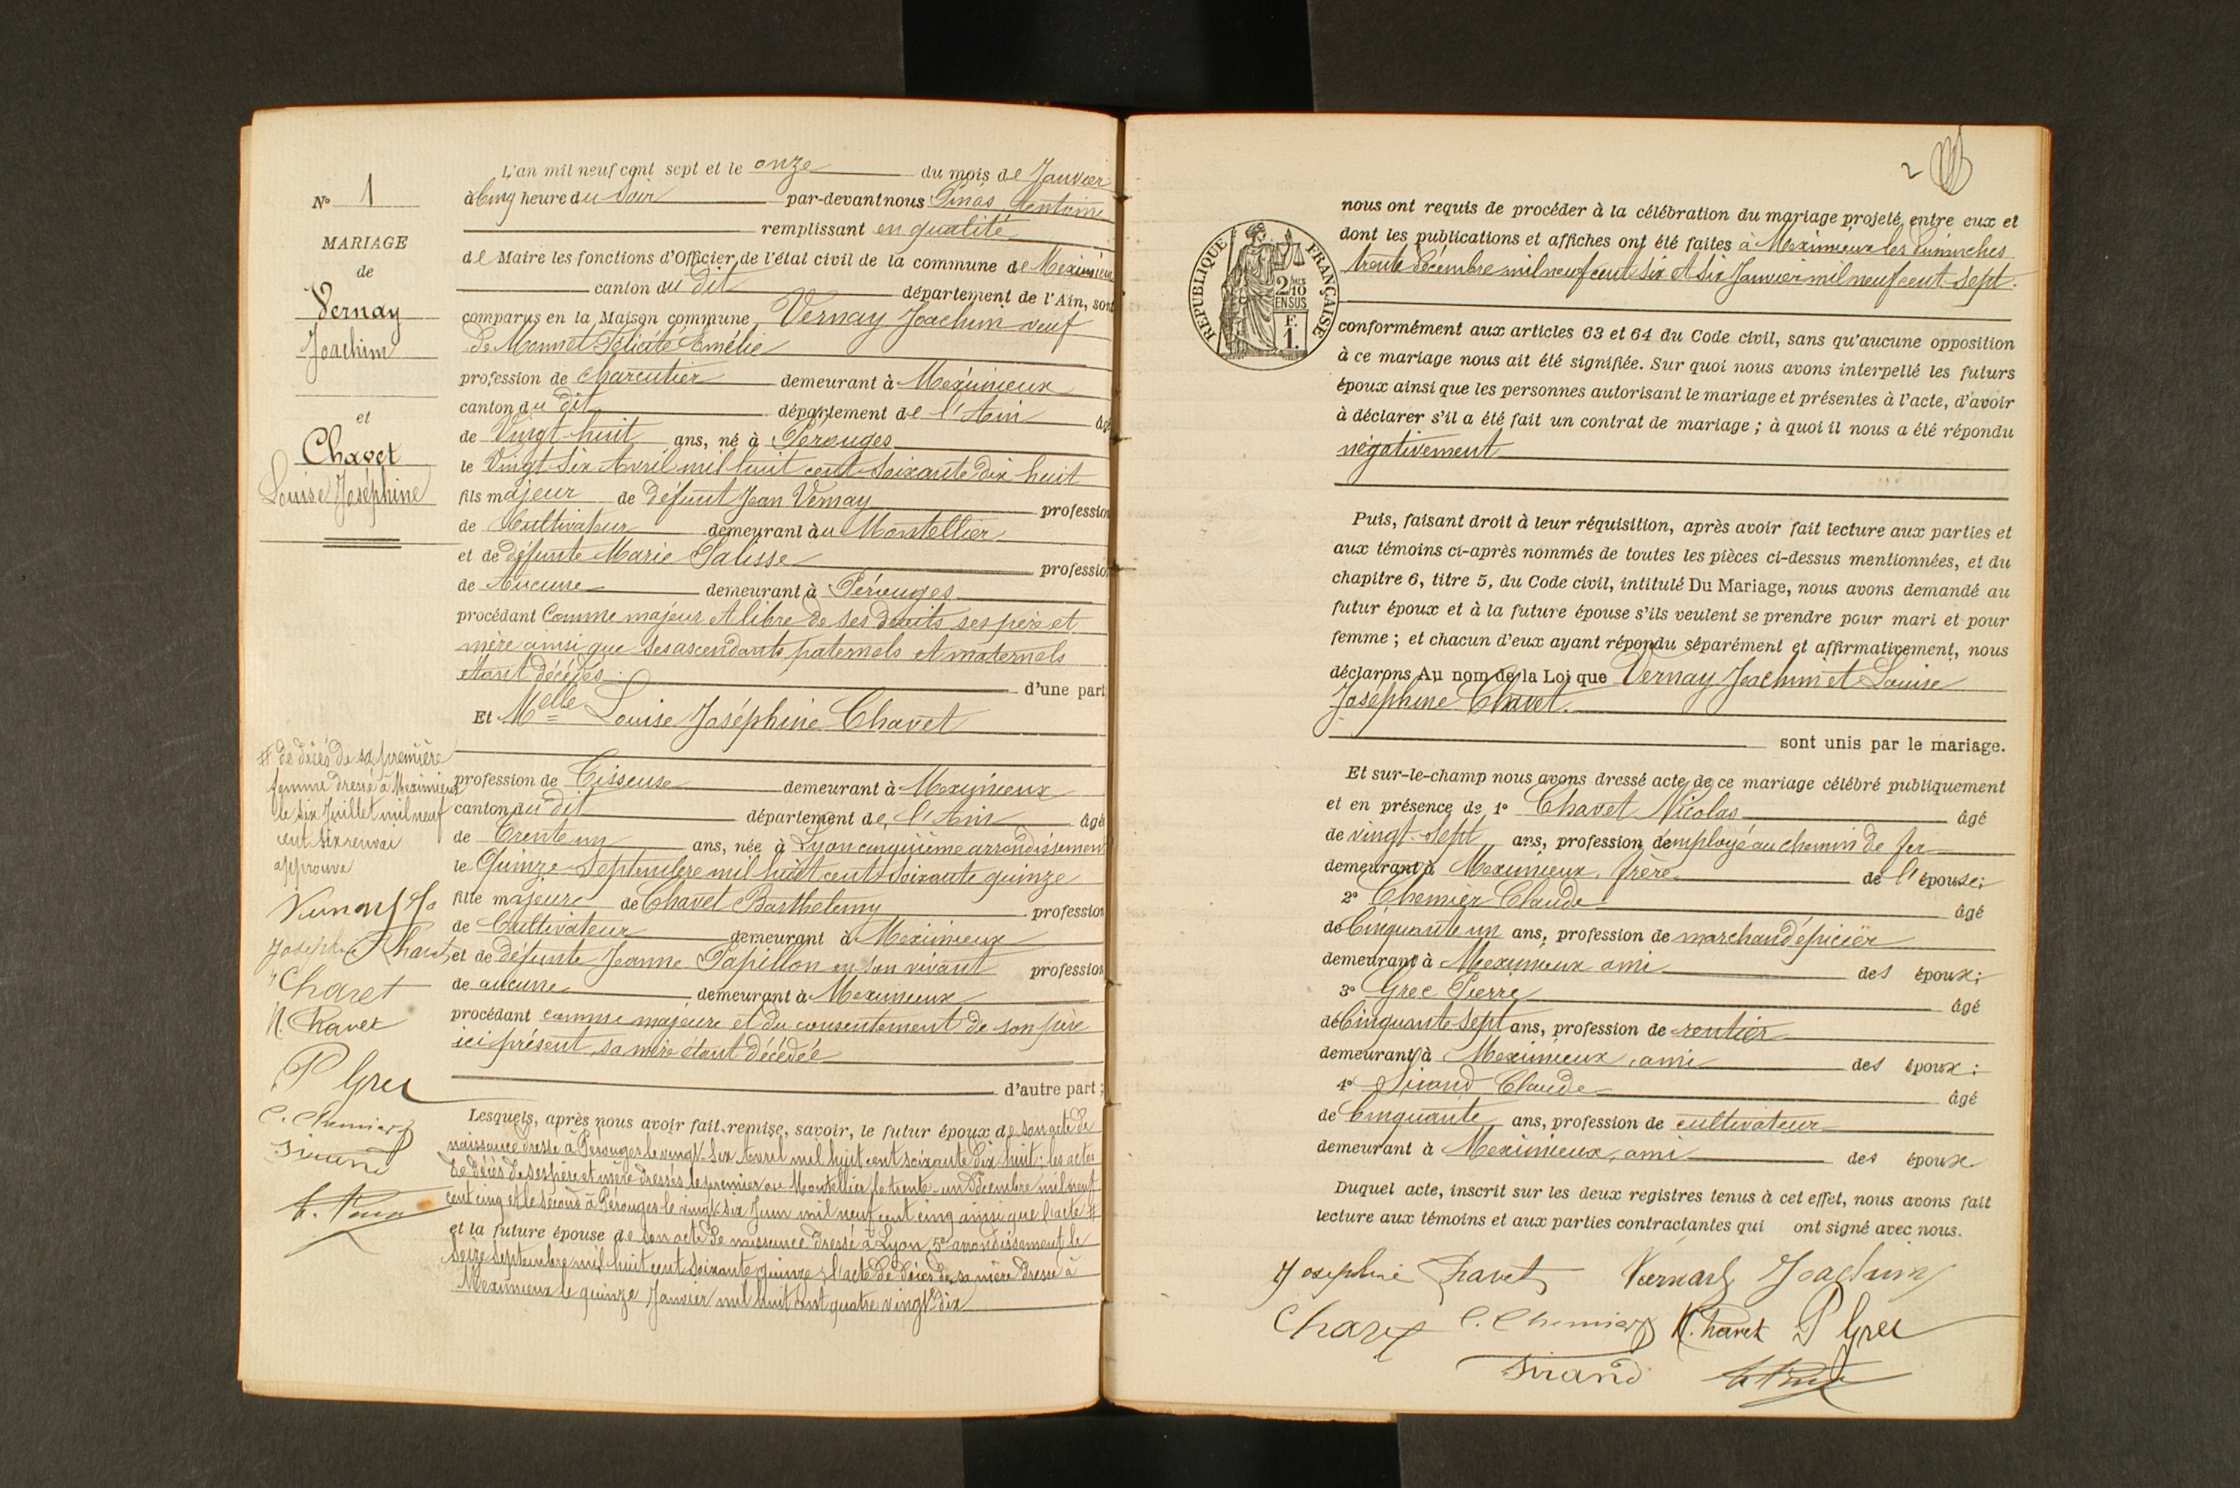 N° 1
MARIAGE
de
Vernay
Joachim
et
Chavet
Louise Joséphine
L'an mil neuf cent sept et le onze du mois de Janvier
à Cinq heure du Soir par-devant nous Pinas Antoine
remplissant en qualité
de Maire les fonctions d'Officier de l'état civil de la commune de Meximieux
canton du dit département de l'Ain, sont
comparus en la Maison commune, Vernay Joachim veuf
de Monnet Félicité Emélie
profession de charcutier demeurant à Meximieux
canton du dit département de l'Ain âgé
de Vingt-huit ans, né à Pérouges
le Vingt Six Avril mil huit cent Soixante dix huit
fils majeur de défunt Jean Vernay profession
de Cultivateur demeurant au Montellier
et de défunte Marie Palisse profession
de Aucune demeurant à Pérouges
procédant Comme majeur et libre de ses droits ses père et
mère ainsi que ses ascendants paternels et maternels
étant décédés d'une part
Et Melle Louise Joséphine Chavet
profession de Tisseuse demeurant à Meximieux
canton du dit département de l'Ain âgé
de Trente un ans, née à Lyon cinquième arrondissement
le Quinze Septembre mil huit cent Soixante quinze
fille majeure de Chavet Barthelemy profession
de Cultivateur demeurant à Meximieux
et de défunte Jeanne Papillon en son vivant profession
de aucune demeurant à Meximieux
procédant comme majeure et du consentement de son père
ici présent, sa mère étant décédée
d'autre part;
Lesquels, après nous avoir fait remise, savoir, le futur époux de son acte de
naissance dressé à Pérouges le vingt-Six Avril mil huit cent soixante dix huit; les actes
de décès de ses père et mère dressés le premier au Montellier le trente-un Décembre mil neuf
cent cinq et le second à Pérouges le vingt-six Juin mil neuf cent cinq ainsi que l'acte #
et la future épouse de son acte de naissance dressé à Lyon, 5e arrondissement le
Seize Septembre mil huit cent Soixante quinze; l'acte de décès de sa mère dressé à
Meximieux le quinze Janvier mil huit cent quatre vingt dix
# de décès de sa première
femme dressé à Meximieux
le Six Juillet mil neuf
cent six renvoi
approuvé
Vernay Jo
Joséphine Chavet
Chavet
N. Chavet
P Grec
C. Chemier
Sirand
2
RÉPUBLIQUE FRANÇAISE
2/10
EN SUS
F.
1.
nous ont requis de procéder à la célébration du mariage projeté entre eux et
dont les publications et affiches ont été faites à Meximieux les Dimanches
trente Décembre mil neuf cent Six et Six Janvier mil neuf cent Sept.
conformément aux articles 63 et 64 du Code civil, sans qu'aucune opposition
à ce mariage nous ait été signifiée. Sur quoi nous avons interpellé les futurs
époux ainsi que les personnes autorisant le mariage et présentes à l'acte, d'avoir
à déclarer s'il a été fait un contrat de mariage; à quoi il nous a été répondu
négativement
Puis, faisant droit à leur réquisition, après avoir fait lecture aux parties et
aux témoins ci-après nommés de toutes les pièces ci-dessus mentionnées, et du
chapitre 6, titre 5, du Code civil, intitulé Du Mariage, nous avons demandé au
futur époux et à la future épouse s'ils veulent se prendre pour mari et pour
femme; et chacun d'eux ayant répondu séparément et affirmativement, nous
déclarons Au nom de la Loi que Vernay Joachim et Louise
Joséphine Chavet.
sont unis par le mariage.
Et sur-le-champ nous avons dressé acte de ce mariage célébré publiquement
et en présence de 1° Chavet Nicolas âgé
de vingt-sept ans, profession d'employé au chemin de fer
demeurant à Meximieux, frère de l'épouse;
2° Chemier Claude âgé
de Cinquante un ans, profession de marchand épicier
demeurant à Meximieux ami des époux;
3° Grec Pierre âgé
de Cinquante Sept ans, profession de rentier
demeurant à Meximieux, ami des époux;
4° Sirand Claude âgé
de Cinquante ans, profession de cultivateur
demeurant à Meximieux, ami des époux
Duquel acte, inscrit sur les deux registres tenus à cet effet, nous avons fait
lecture aux témoins et aux parties contractantes qui ont signé avec nous.
Joséphine Chavet Vernay Joachim
Chavet C. Chemier N. Chavet P Grec
Sirand